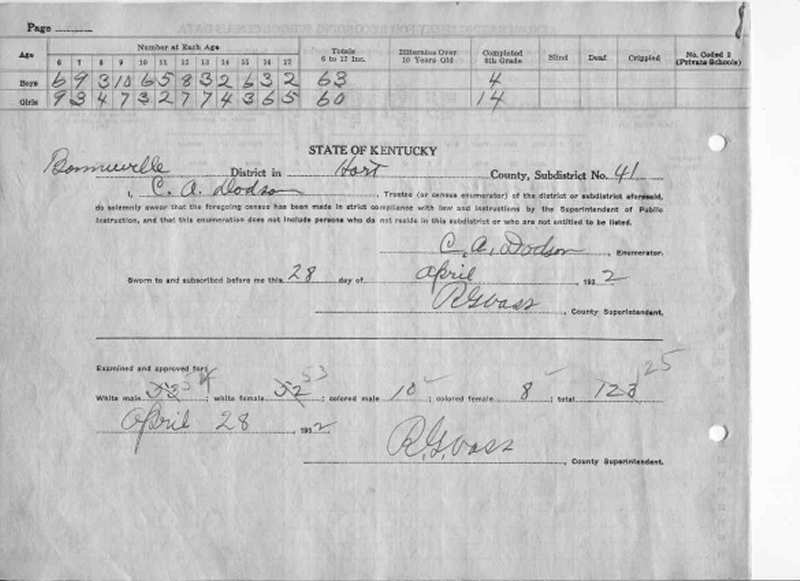 Page
Age Number at Each Age Totals 6 to 17 Inc. Illiterates Over 10 Years Old Completed 8th Grade Blind Deaf Crippled No. Coded 2 (Private Schools)
6 7 8 9 10 11 12 13 14 15 16 17
Boys 6 9 3 10 6 5 8 3 2 6 3 2 63 4
Girls 9 3 4 7 3 2 7 7 4 3 6 5 60 14
STATE OF KENTUCKY
Bonnieville District in Hart County, Subdistrict No. 41
I, C. A. Dodson, Trustee (or census enumerator) of the district or subdistrict aforesaid,
do solemnly swear that the foregoing census has been made in strict compliance with law and instructions by the Superintendent of Public
Instruction, and that this enumeration does not include persons who do not reside in this subdistrict or who are not entitled to be listed.
C. A. Dodson, Enumerator.
Sworn to and subscribed before me this 28 day of April, 1932
R G Vass, County Superintendent.
Examined and approved for:
White male 53 54; white female 52 53; colored male 10; colored female 8; total 123 25
April 28, 1932
R. G. Vass
, County Superintendent.